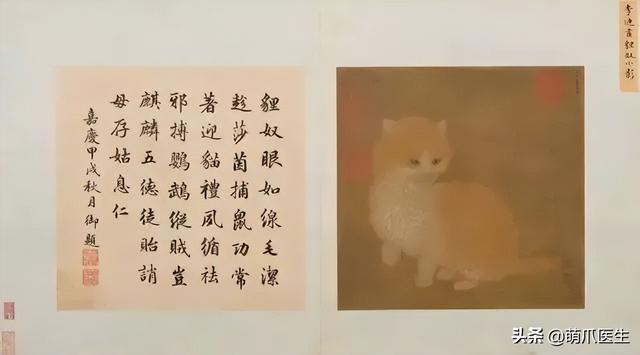 李迪畫貍奴小影
貍奴眼如線毛潔
趁莎茵捕鼠功常
著迎貓禮夙循祛
邪搏鸚鵡縱賊豈
麒麟五德徒貽誚
毋存姑息仁
嘉慶甲戌秋月御題
头条 @萌爪医生